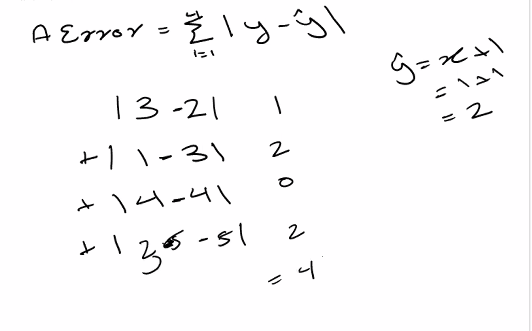 A Error = Σ |y - ŷ|
4
i=1
ŷ = x + 1
= 1 + 1
= 2
|3 - 2| 1
+ |1 - 3| 2
+ |4 - 4| 0
+ |3 - 5| 2
= 4